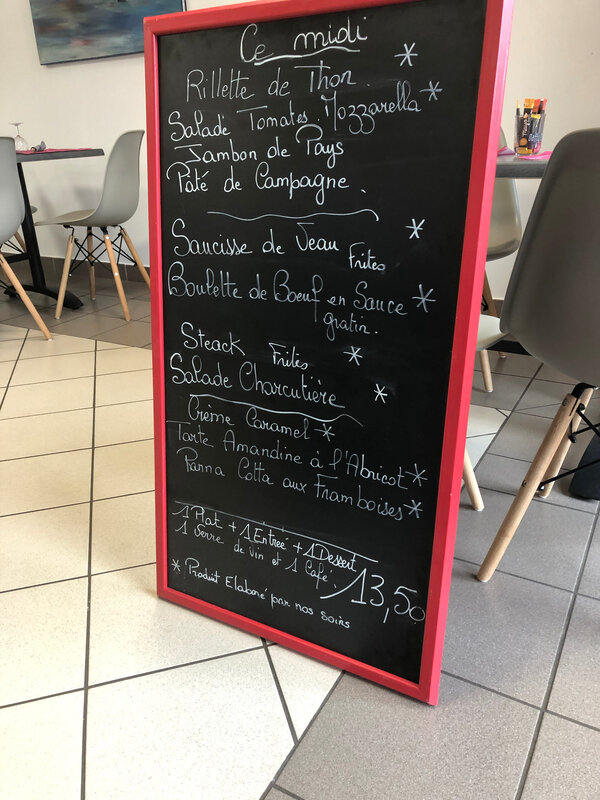 Ce midi
Rillette de Thon *
Salade Tomates Mozzarella *
Jambon de Pays
Pâté de Campagne.
Saucisse de Veau Frites *
Boulette de Boeuf en Sauce *
gratin.
Steack Frites *
Salade Charcutière *
Crème Caramel *
Tarte Amandine à l'Abricot *
Panna Cotta aux Framboises *
1 Plat + 1 Entreé + 1 Dessert
1 Verre de Vin et 1 Café.
13,50
* Produit Elaboré par nos soins